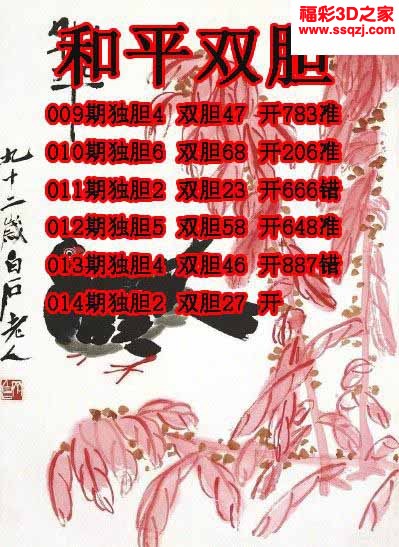 福彩3D之家
www.ssqzj.com
和平双胆
009期独胆4 双胆47 开783准
010期独胆6 双胆68 开206准
011期独胆2 双胆23 开666错
012期独胆5 双胆58 开648准
013期独胆4 双胆46 开887错
014期独胆2 双胆27 开
九十二歲白石老人